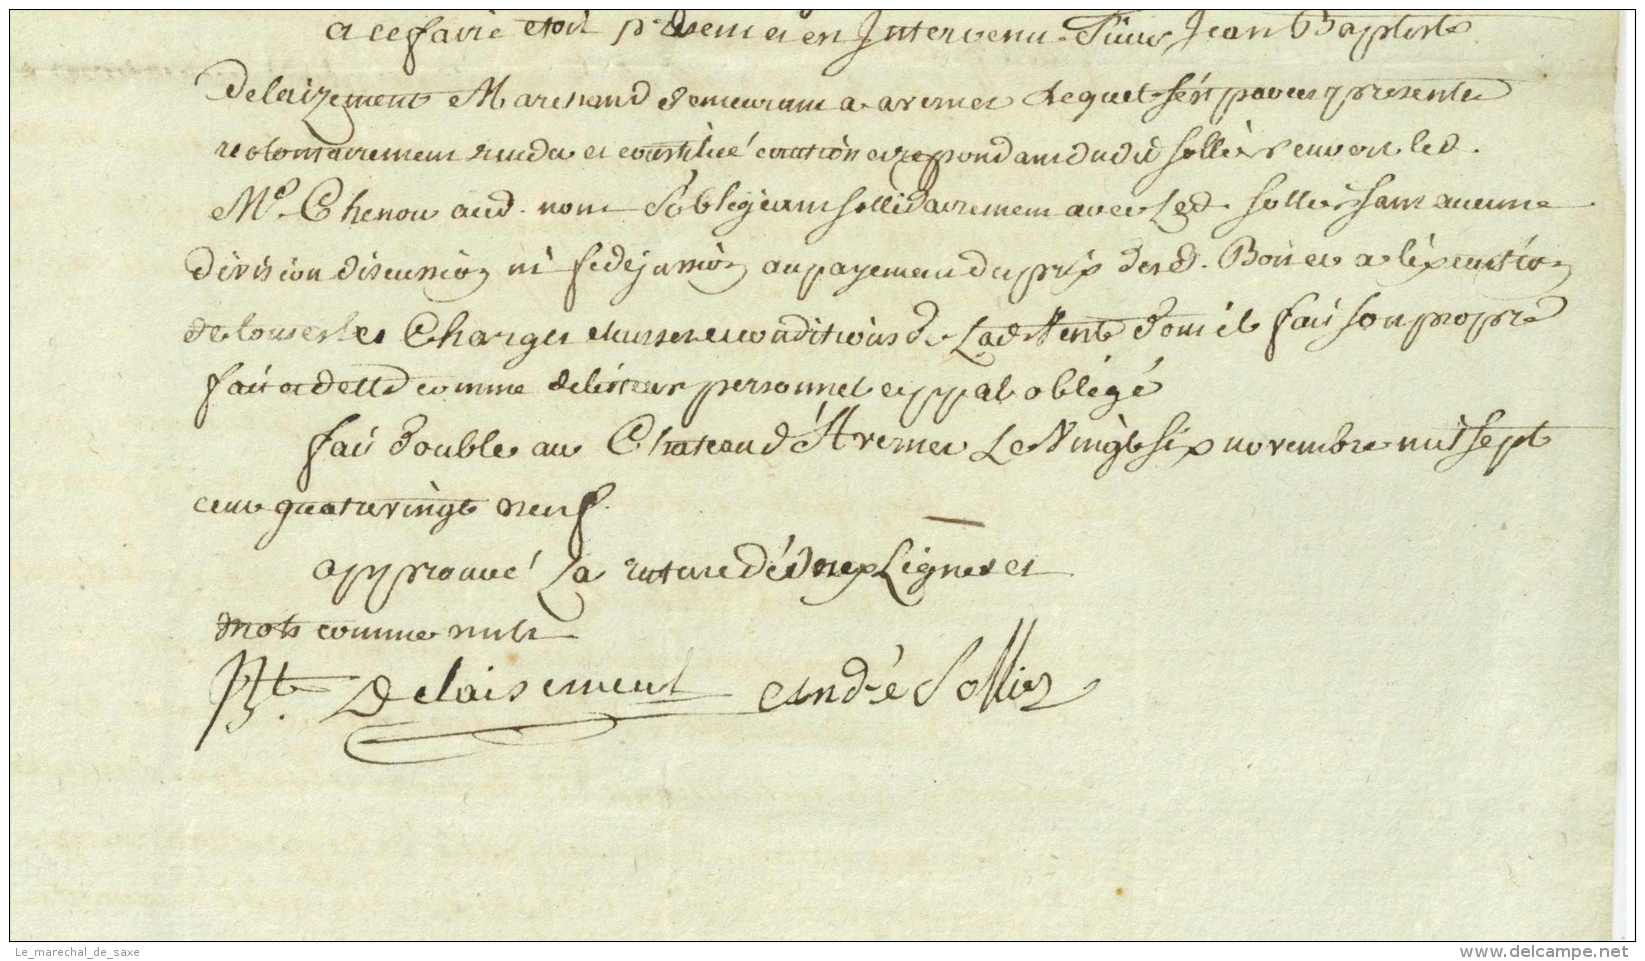 a ce faire etoit present et en Intervenu Sieur Jean Baptiste
Delaizement Marchand demeurant a avernes Lequel s'est par ces presentes
volontairement rendu et constitué caution et repondant dudit sollier envers led.
Me. Chenou aud. nom s'obligeant sollidairement avec Led. sollier sans aucune
division discussion ni fidejussion au payement du prix desd. Bois et a l'exécution
de toutes les Charges clauses et conditions de Lad. Vente dont il fait son propre
fait et dette comme debiteur personnel et ppal obligé
fait double au Chateau d'Avernes Le Vingt six novembre mil sept
cent quatrevingt neuf.
approuvé La rature de deux Lignes et
mots comme nuls
Bte. Delaisement andré Sollier
Le_marechal_de_saxe
www.delcampe.net